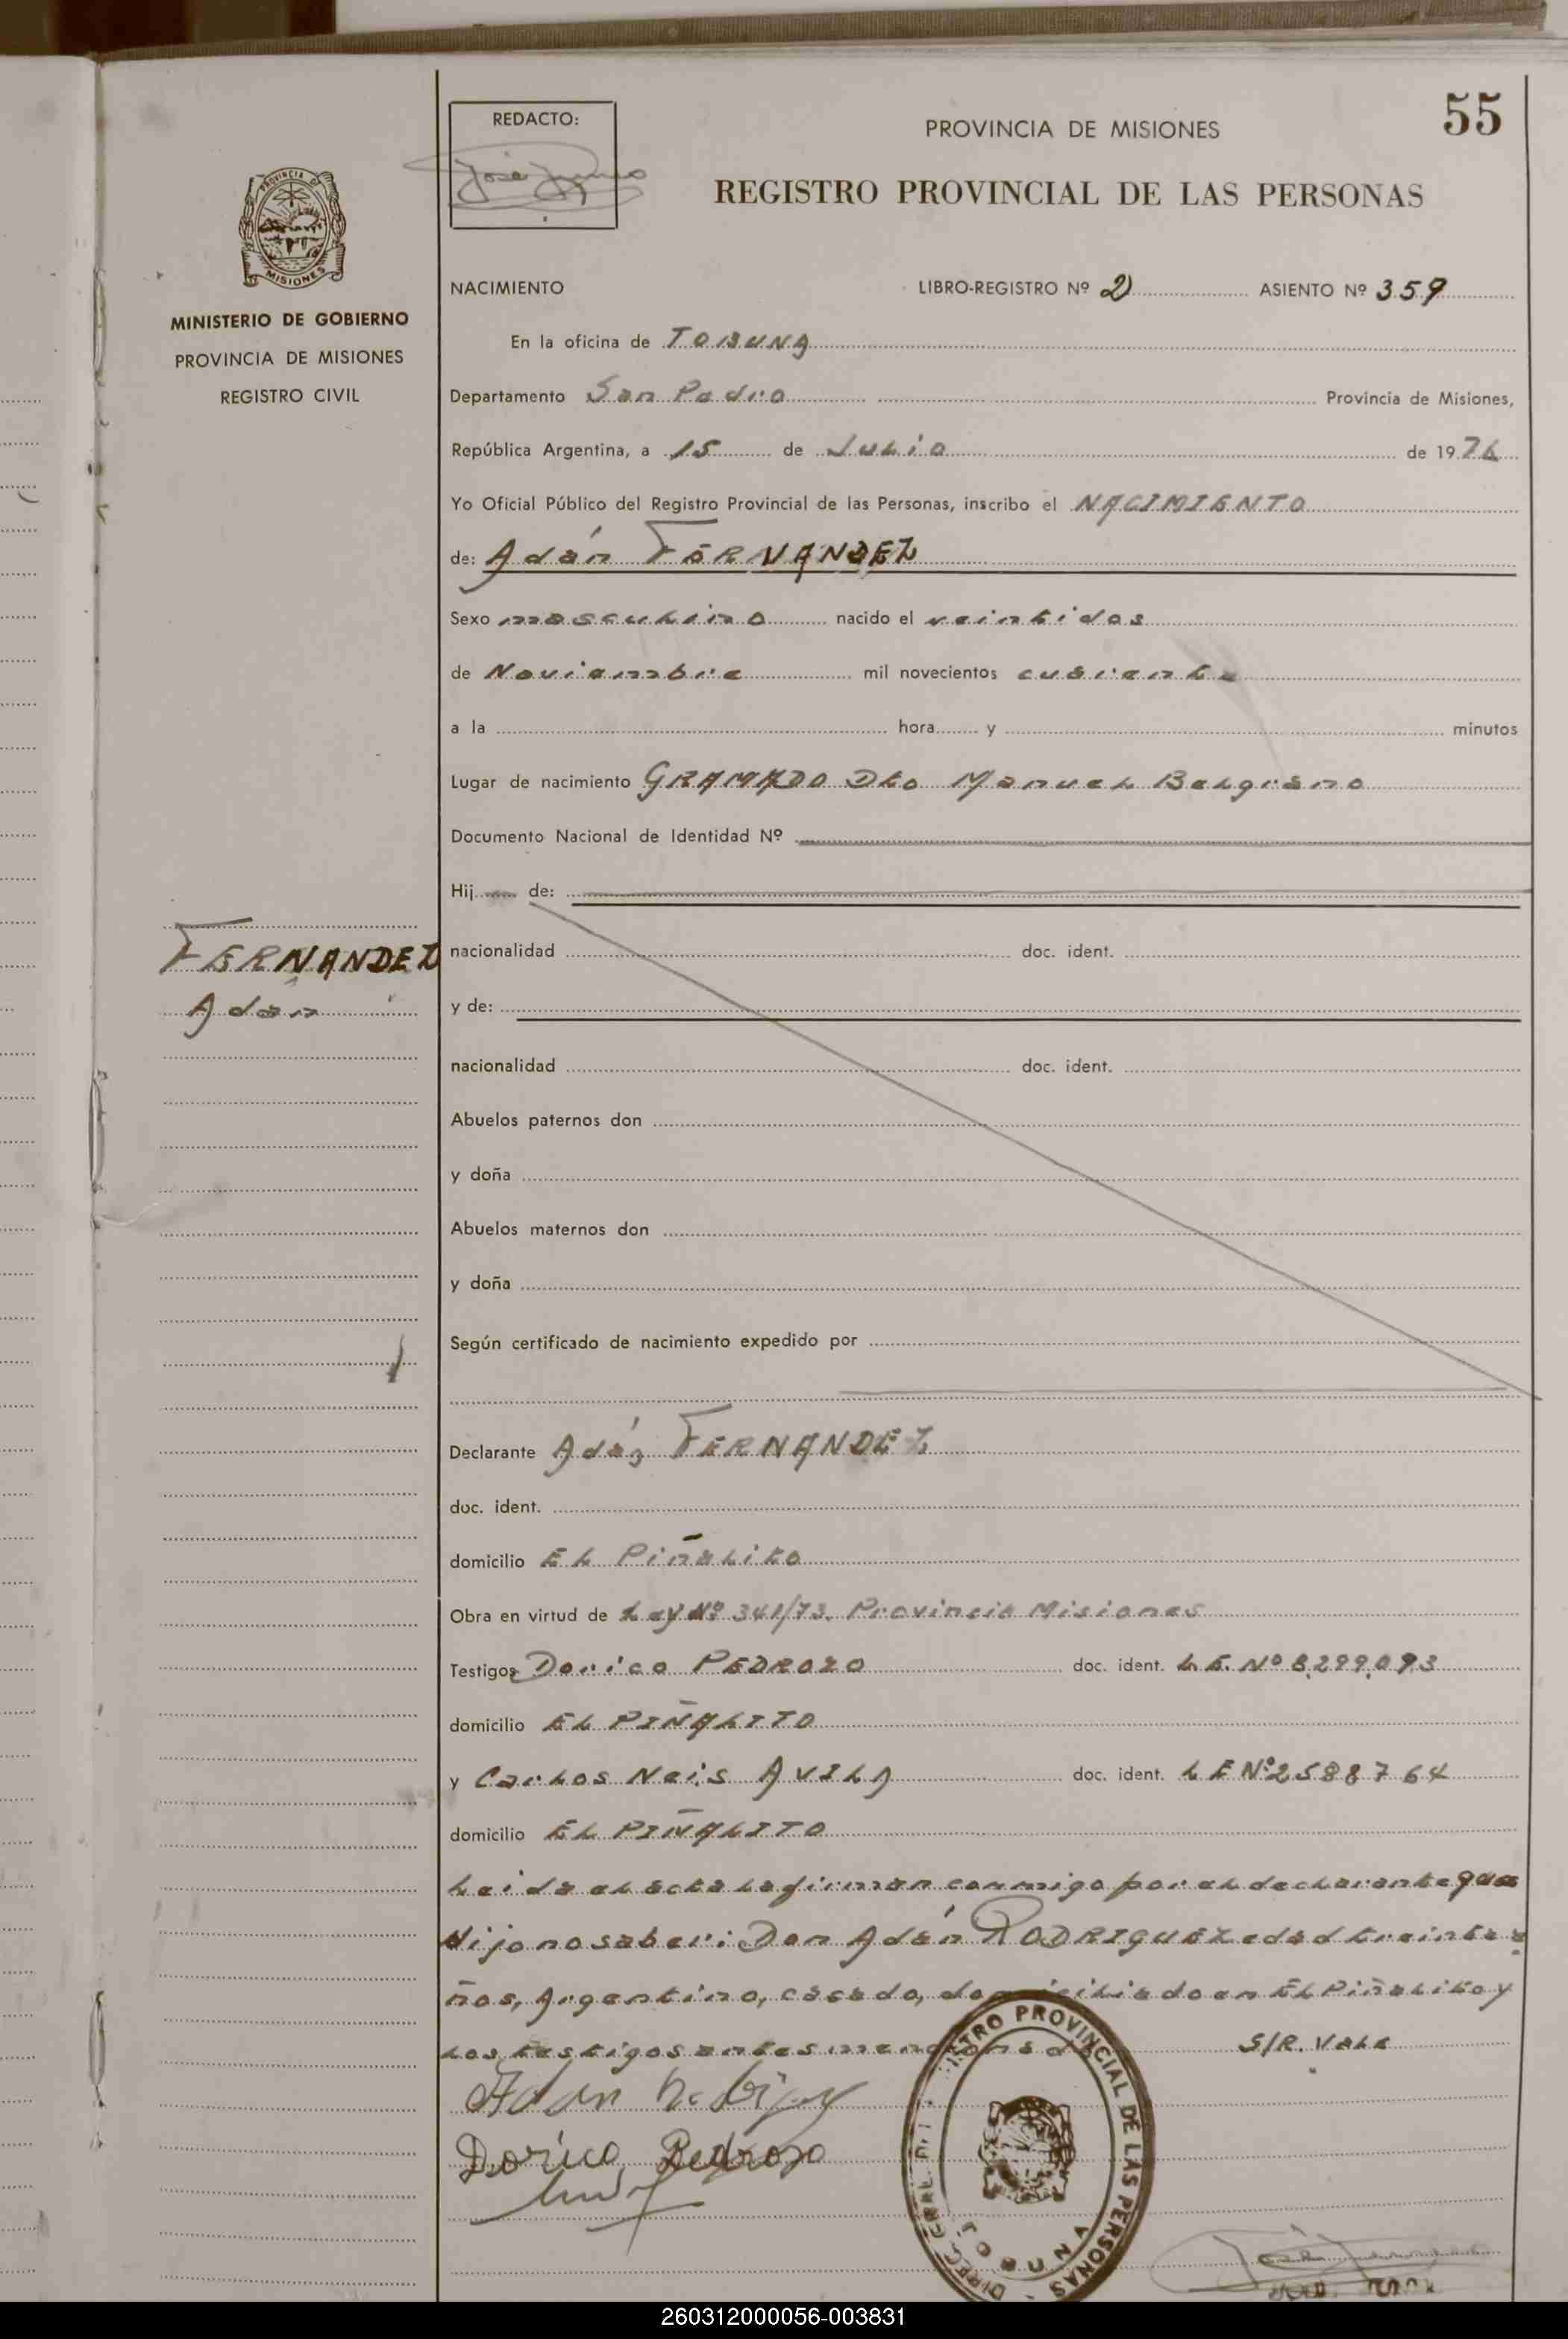 55
REDACTO:
PROVINCIA DE MISIONES
REGISTRO PROVINCIAL DE LAS PERSONAS
PROVINCIA DE
MISIONES
MINISTERIO DE GOBIERNO
PROVINCIA DE MISIONES
REGISTRO CIVIL
NACIMIENTO LIBRO-REGISTRO Nº 2 ASIENTO Nº 359
En la oficina de TOBUNA
Departamento San Pedro Provincia de Misiones,
República Argentina, a 15 de Julio de 1976
Yo Oficial Público del Registro Provincial de las Personas, inscribo el NACIMIENTO
de: Adán FERNANDEZ
Sexo masculino nacido el veintidos
de Noviembre mil novecientos cuarenta
a la hora y minutos
Lugar de nacimiento GRAMADO Dto Manuel Belgrano
Documento Nacional de Identidad Nº
Hij de:
FERNANDEZ
Adán
nacionalidad doc. ident.
y de:
nacionalidad doc. ident.
Abuelos paternos don
y doña
Abuelos maternos don
y doña
Según certificado de nacimiento expedido por
Declarante Adán FERNANDEZ
doc. ident.
domicilio El Piñalito
Obra en virtud de Ley Nº 341/73. Provincia Misiones
Testigos Dorico PEDROZO doc. ident. L.E. Nº 8.299.093
domicilio EL PIÑALITO
y Carlos Neis AVILA doc. ident. LE Nº 2588764
domicilio EL PIÑALITO
Leida el acta la firman conmigo por el declarante que
dijo no saber: Don Adán RODRIGUEZ edad treinta a
ños, Argentino, casado, domiciliado en El Piñalito y
los testigos antes menciona S/R. Vale
Dorico Pedrozo
DIREC. GRAL. REGISTRO PROVINCIAL DE LAS PERSONAS
TOBUNA
260312000056-003831